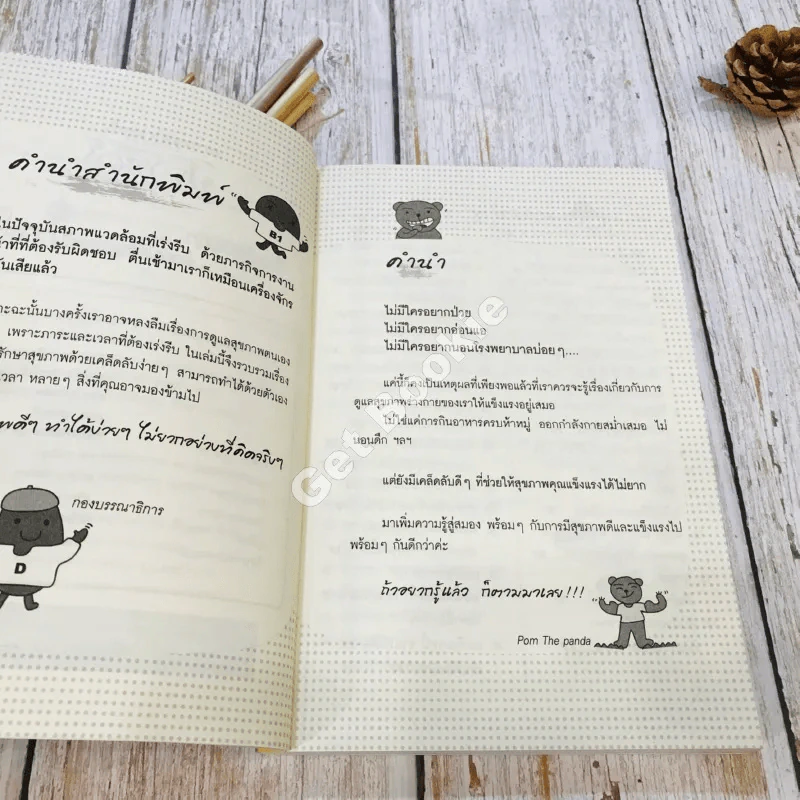 คำนำสำนักพิมพ์
B1
ในปัจจุบันสภาพแวดล้อมที่เร่งรีบ ด้วยภารกิจการงาน
ที่ต้องรับผิดชอบ ตื่นเช้ามาเราก็เหมือนเครื่องจักร
กันเสียแล้ว
เพราะฉะนั้นบางครั้งเราอาจหลงลืมเรื่องการดูแลสุขภาพตนเอง
เพราะภาระและเวลาที่ต้องเร่งรีบ ในเล่มนี้จึงรวบรวมเรื่อง
รักษาสุขภาพด้วยเคล็ดลับง่ายๆ สามารถทำได้ด้วยตัวเอง
เวลา หลายๆ สิ่งที่คุณอาจมองข้ามไป
ดีๆ ทำได้ง่ายๆ ไม่ยากอย่างที่คิดจริงๆ
กองบรรณาธิการ
D
คำนำ
ไม่มีใครอยากป่วย
ไม่มีใครอยากอ่อนแอ
ไม่มีใครอยากนอนโรงพยาบาลบ่อยๆ....
แค่นี้ก็คงเป็นเหตุผลที่เพียงพอแล้วที่เราควรจะรู้เรื่องเกี่ยวกับการ
ดูแลสุขภาพร่างกายของเราให้แข็งแรงอยู่เสมอ
ไม่ใช่แค่การกินอาหารครบห้าหมู่ ออกกำลังกายสม่ำเสมอ ไม่
นอนดึก ฯลฯ
แต่ยังมีเคล็ดลับดีๆ ที่ช่วยให้สุขภาพคุณแข็งแรงได้ไม่ยาก
มาเพิ่มความรู้สู่สมอง พร้อมๆ กับการมีสุขภาพดีและแข็งแรงไป
พร้อมๆ กันดีกว่าค่ะ
ถ้าอยากรู้แล้ว ก็ตามมาเลย!!!
Pom The panda
Get Bookie